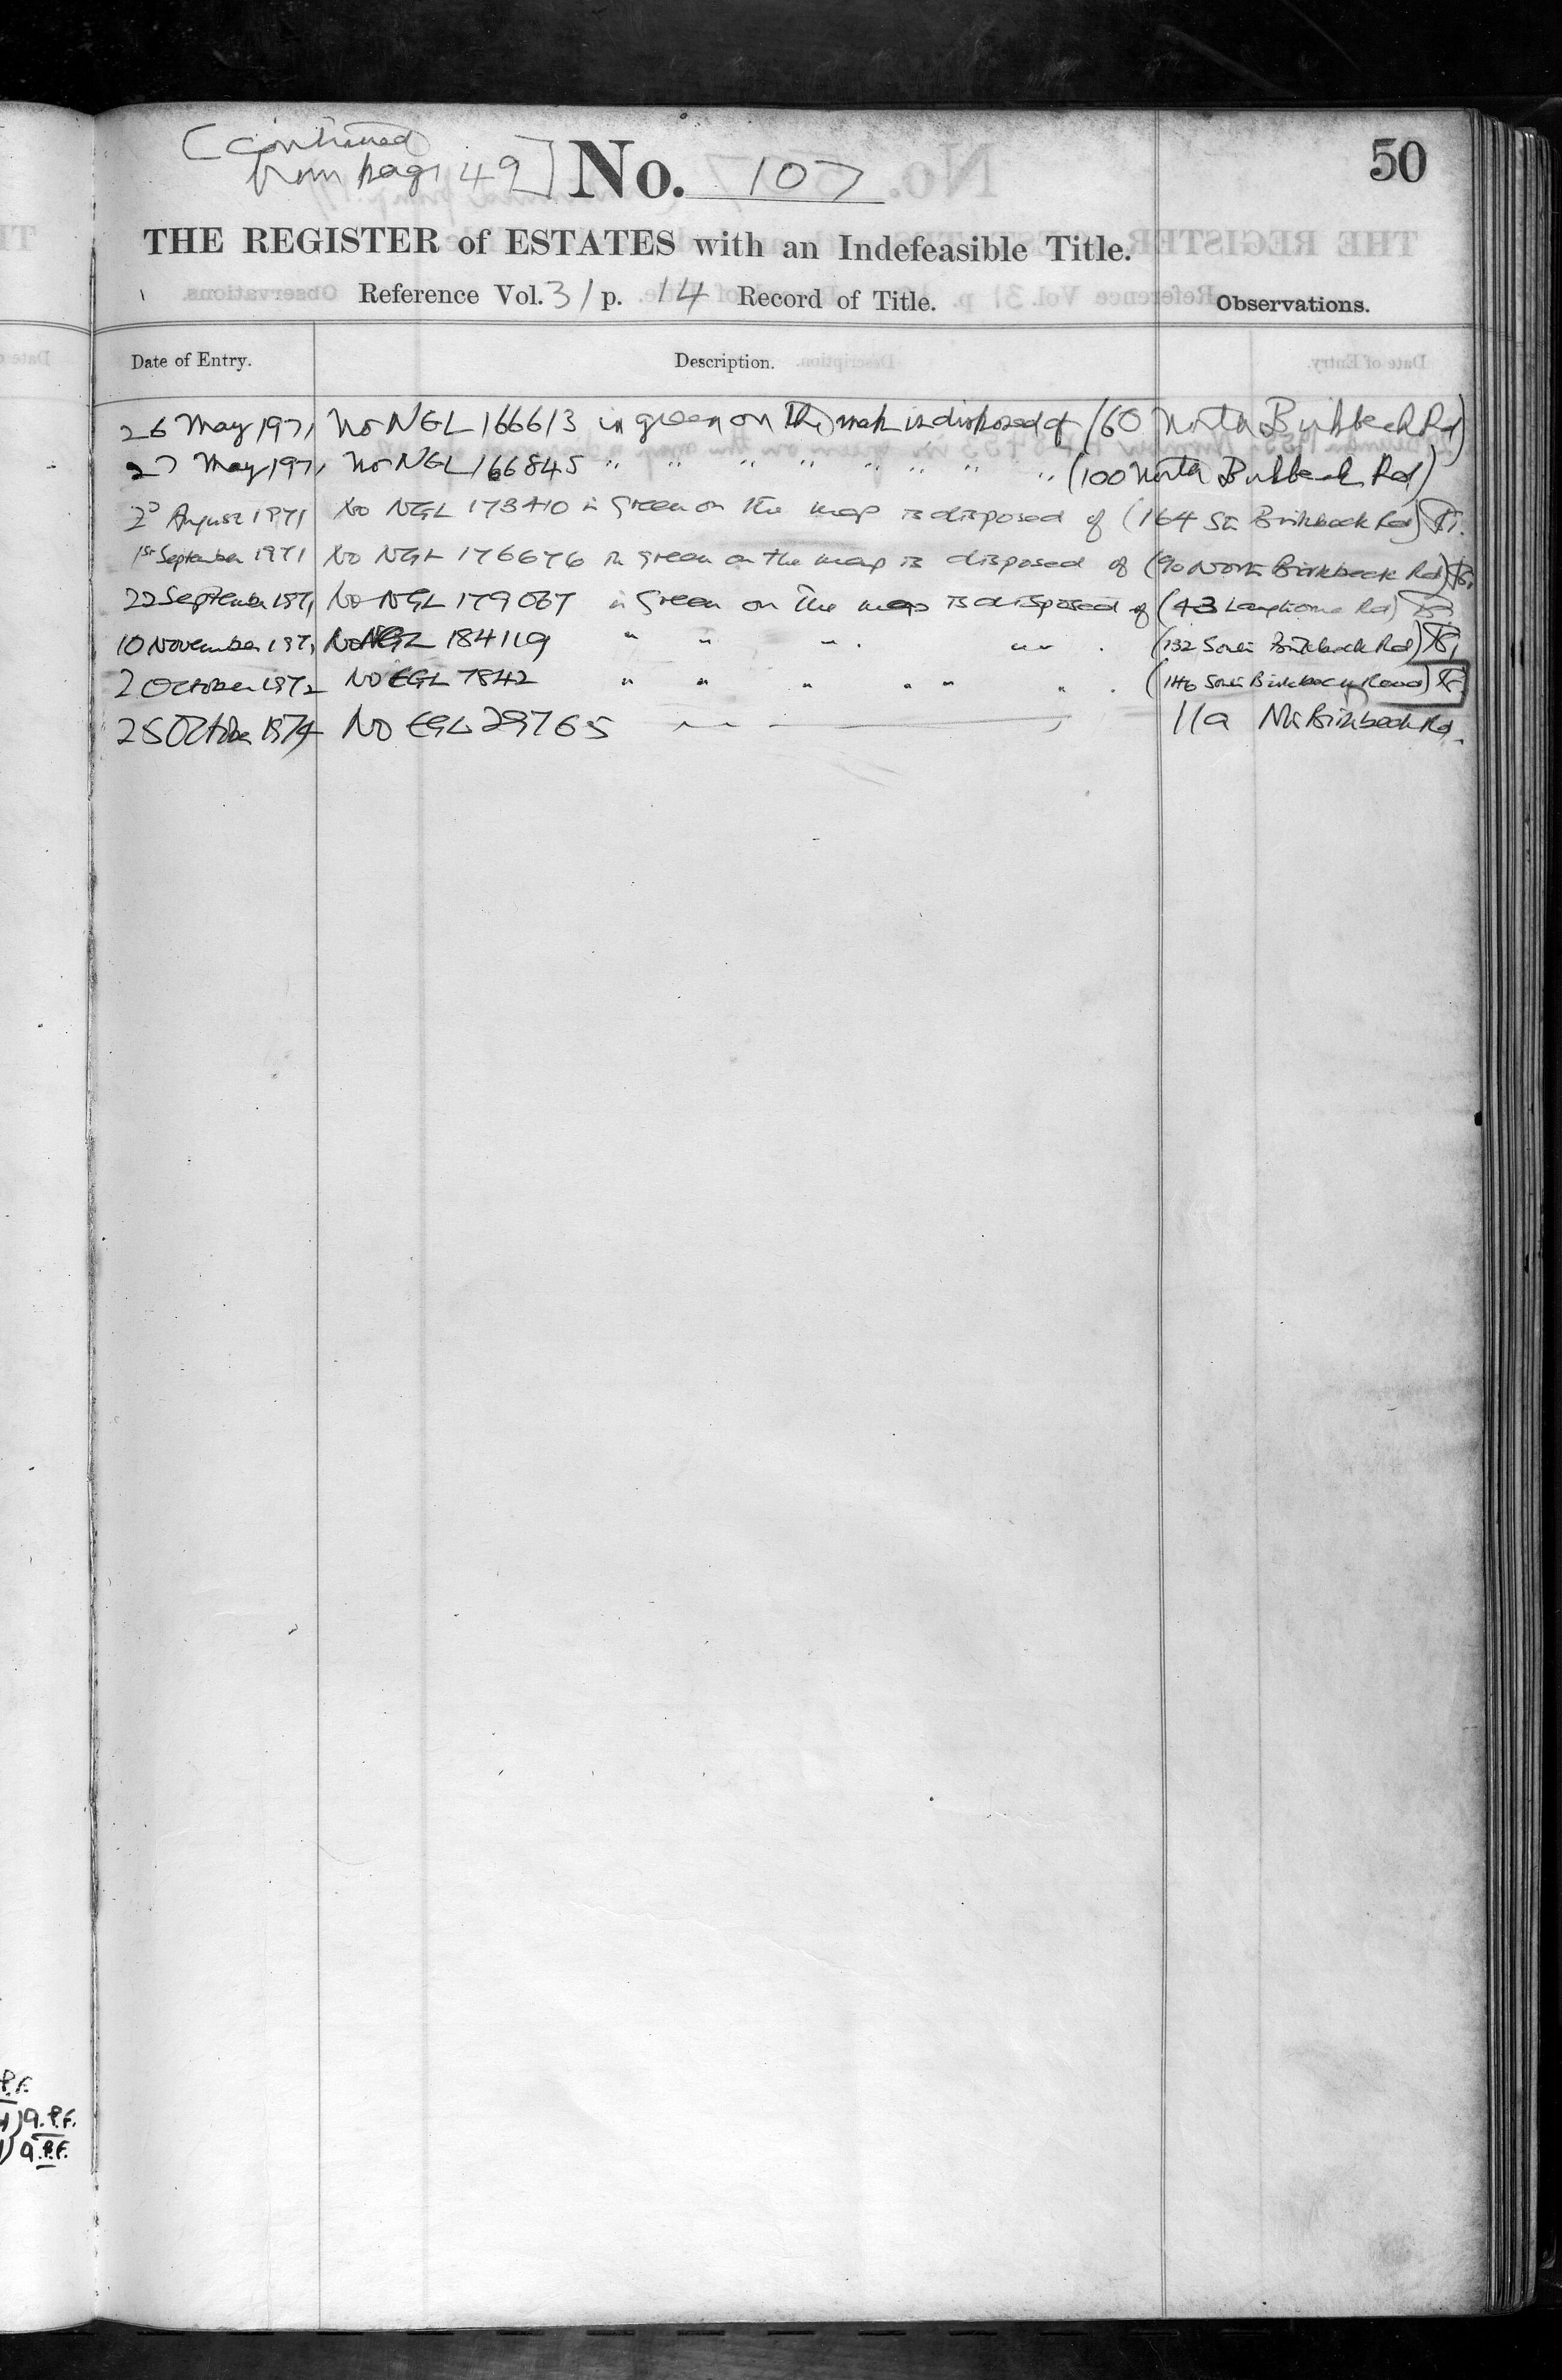 [continued
from page 49]
No. 107
50
THE REGISTER of ESTATES with an Indefeasible Title.
Reference Vol. 31 p. 14 Record of Title.
Observations.
Date of Entry.
Description.
26 May 1971 No NGL 166613 in green on the map is disposed of (60 North Birkbeck Rd)
27 May 1971 No NGL 166845 " " " " " " " " (100 North Birkbeck Rd)
2d August 1971 No NGL 173410 in Green on the map is disposed of (164 Sth Birkbeck Rd)
1st September 1971 No NGL 176676 in green on the map is disposed of (90 North Birkbeck Rd)
22 September 1971 No NGL 179067 in Green on the map is disposed of (43 Langthorne Rd)
10 November 1971 No NGL 184119 " " " " " (132 South Birkbeck Rd)
2 October 1972 No EGL 7842 " " " " " " (146 South Birkbeck Road)
25 October 1974 No EGL 29765 11a Nth Birkbeck Rd.
P.F.
a.P.F.
a.P.F.